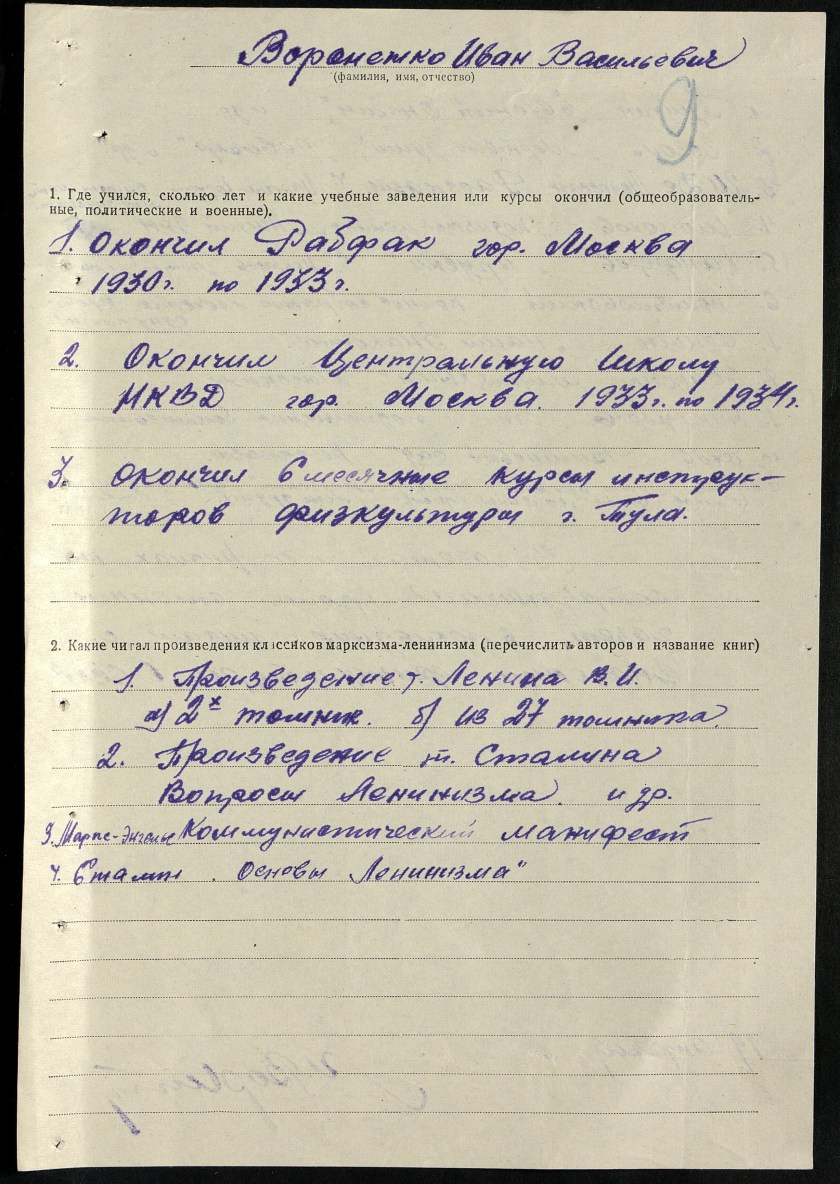 Воронежко Иван Васильевич
(фамилия, имя, отчество)
9
1. Где учился, сколько лет и какие учебные заведения или курсы окончил (общеобразователь-
ные, политические и военные).
1. Окончил Рабфак гор. Москва
1930г. по 1933г.
2. Окончил Центральную Школу
НКВД гор. Москва. 1933г. по 1934г.
3. Окончил 6 месячные курсы инструк-
торов физкультуры г. Тула.
2. Какие читал произведения классиков марксизма-ленинизма (перечислить авторов и название книг)
1. Произведение т. Ленина В.И.
а) 2х томник. б) из 27 томника.
2. Произведение т. Сталина
Вопросы Ленинизма. и др.
3. Маркс-Энгельс Коммунистический манифест
4. Сталин „Основы Ленинизма"